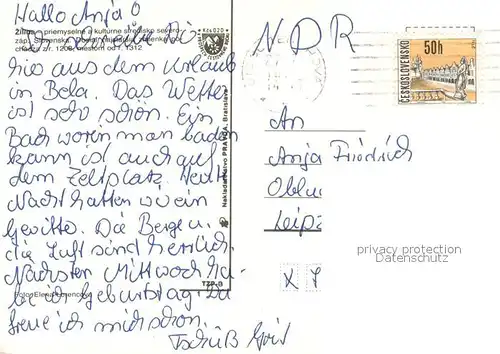 Hallo Anja
Žilina - priemyselné a kultúrne stredisko severo-
záp. Slovenska.
z r. 1208, mestom od r. 1312
hie aus dem Urlaub
in Bela. Das Wetter
ist sehr schön. Ein
Bach worin man baden
kann ist auch auf
dem Zeltplatz. Heute
Nacht hatten wi ein
Gewitte. Die Berge u.
die Luft sind herrlich.
Nächsten Mittwoch ha-
be ich Geburtstag. Da
freue ich mich schon.
Tschüß
Nakladateľstvo PRAVDA, Bratislava
TZP-B
Kčs 0,20
NDR
ČESKOSLOVENSKO
50h
An
Anja Friedrich
Leipz
privacy protection
Datenschutz
X 7